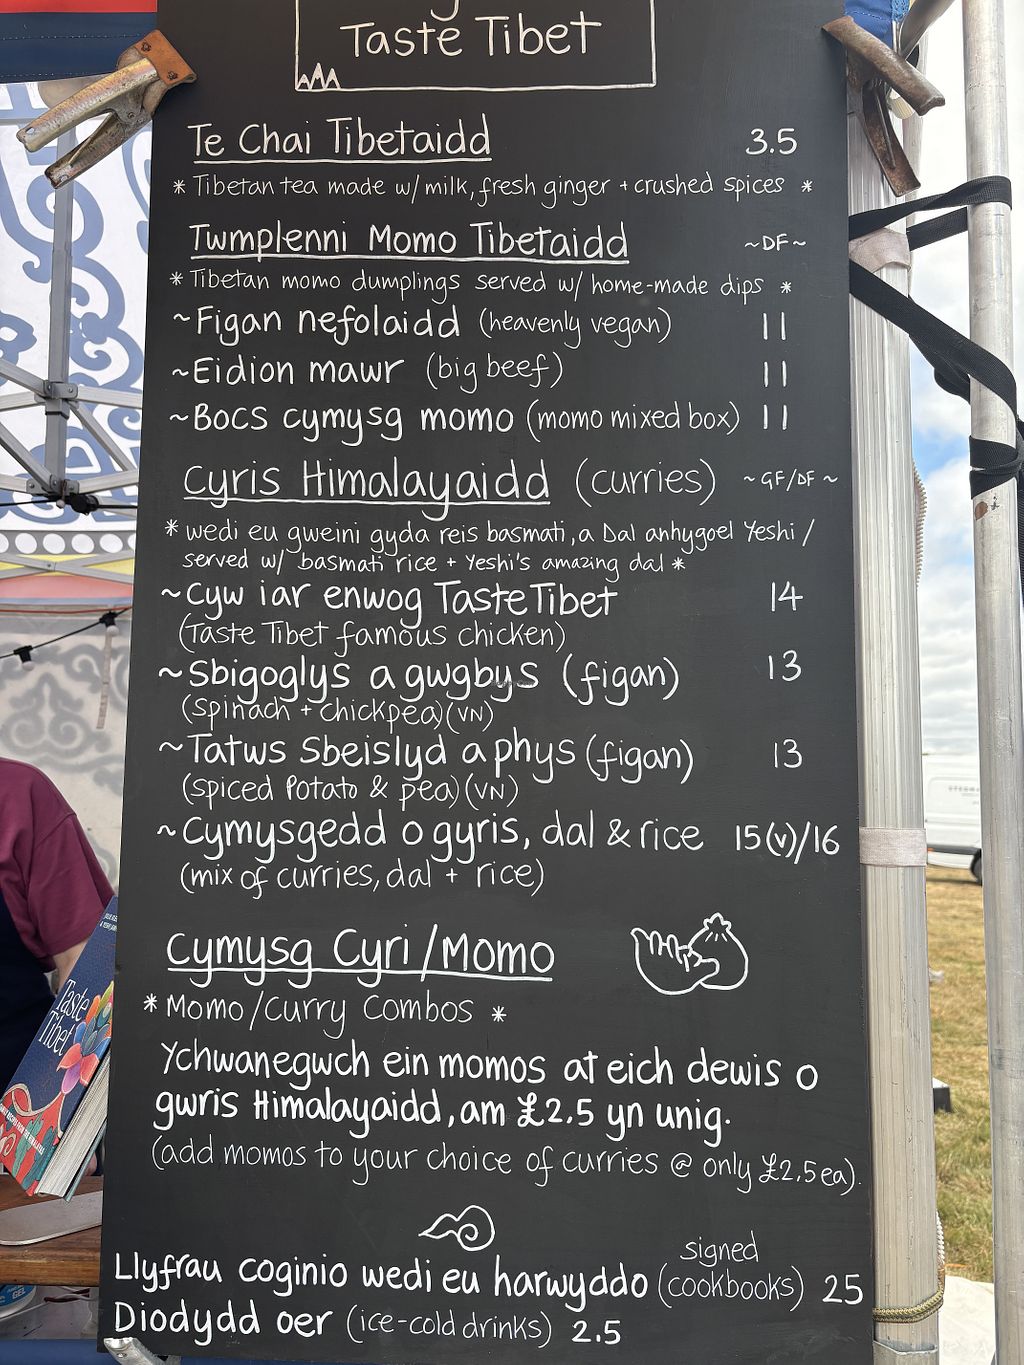 Taste Tibet
Te Chai Tibetaidd 3.5
* Tibetan tea made w/ milk, fresh ginger + crushed spices *
Twmplenni Momo Tibetaidd ~DF~
* Tibetan momo dumplings served w/ home-made dips *
~Figan nefolaidd (heavenly vegan) 11
~Eidion mawr (big beef) 11
~Bocs cymysg momo (momo mixed box) 11
Cyris Himalayaidd (curries) ~GF/DF~
* wedi eu gweini gyda reis basmati, a Dal anhygoel Yeshi /
served w/ basmati rice + Yeshi's amazing dal *
~Cyw iar enwog Taste Tibet 14
(Taste Tibet famous chicken)
~Sbigoglys a gwgbys (figan) 13
(Spinach + chickpea) (VN)
~Tatws Sbeislyd a phys (figan) 13
(spiced Potato & pea) (VN)
~Cymysgedd o gyris, dal & rice 15(v)/16
(mix of curries, dal + rice)
Cymysg Cyri/Momo
* Momo/Curry Combos *
Ychwanegwch ein momos at eich dewis o
gwris Himalayaidd, am £2.5 yn unig.
(add momos to your choice of curries @ only £2.5ea).
signed
Llyfrau coginio wedi eu harwyddo (cookbooks) 25
Diodydd oer (ice-cold drinks) 2.5
Taste
Tibet